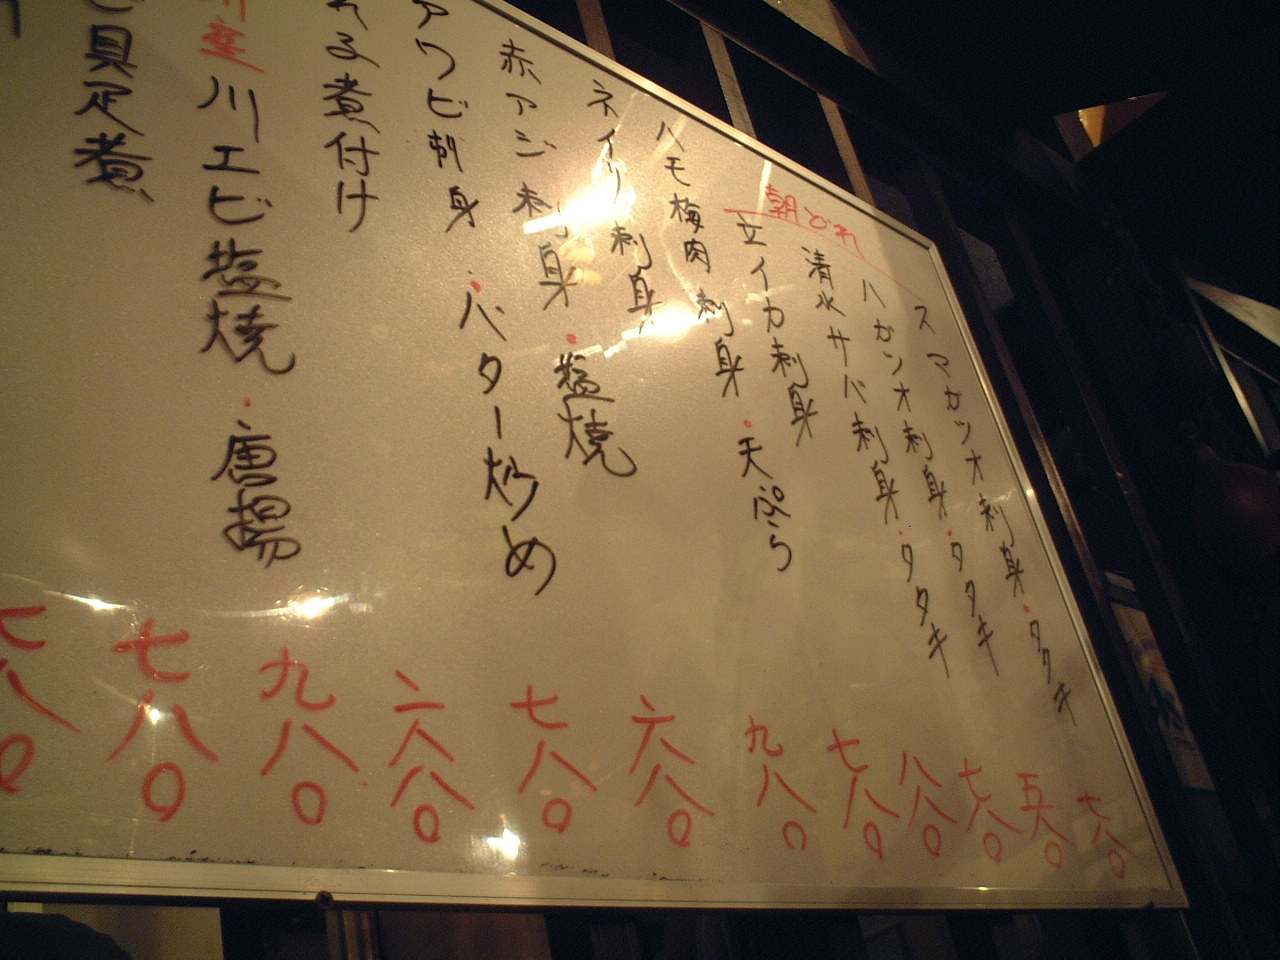 スマガツオ刺身・タタキ 七八〇
ハガツオ刺身・タタキ 五八〇
清水サバ刺身・タタキ 七八〇
朝どれ
立イカ刺身 八八〇
ハモ梅肉刺身・天ぷら 七八〇
ネイリ刺身 九八〇
赤アジ刺身・塩焼 六八〇
アワビ刺身・バター炒め 七八〇
れ子煮付け 六八〇
川エビ塩焼・唐揚 九八〇
貝足煮 七八〇
七八〇